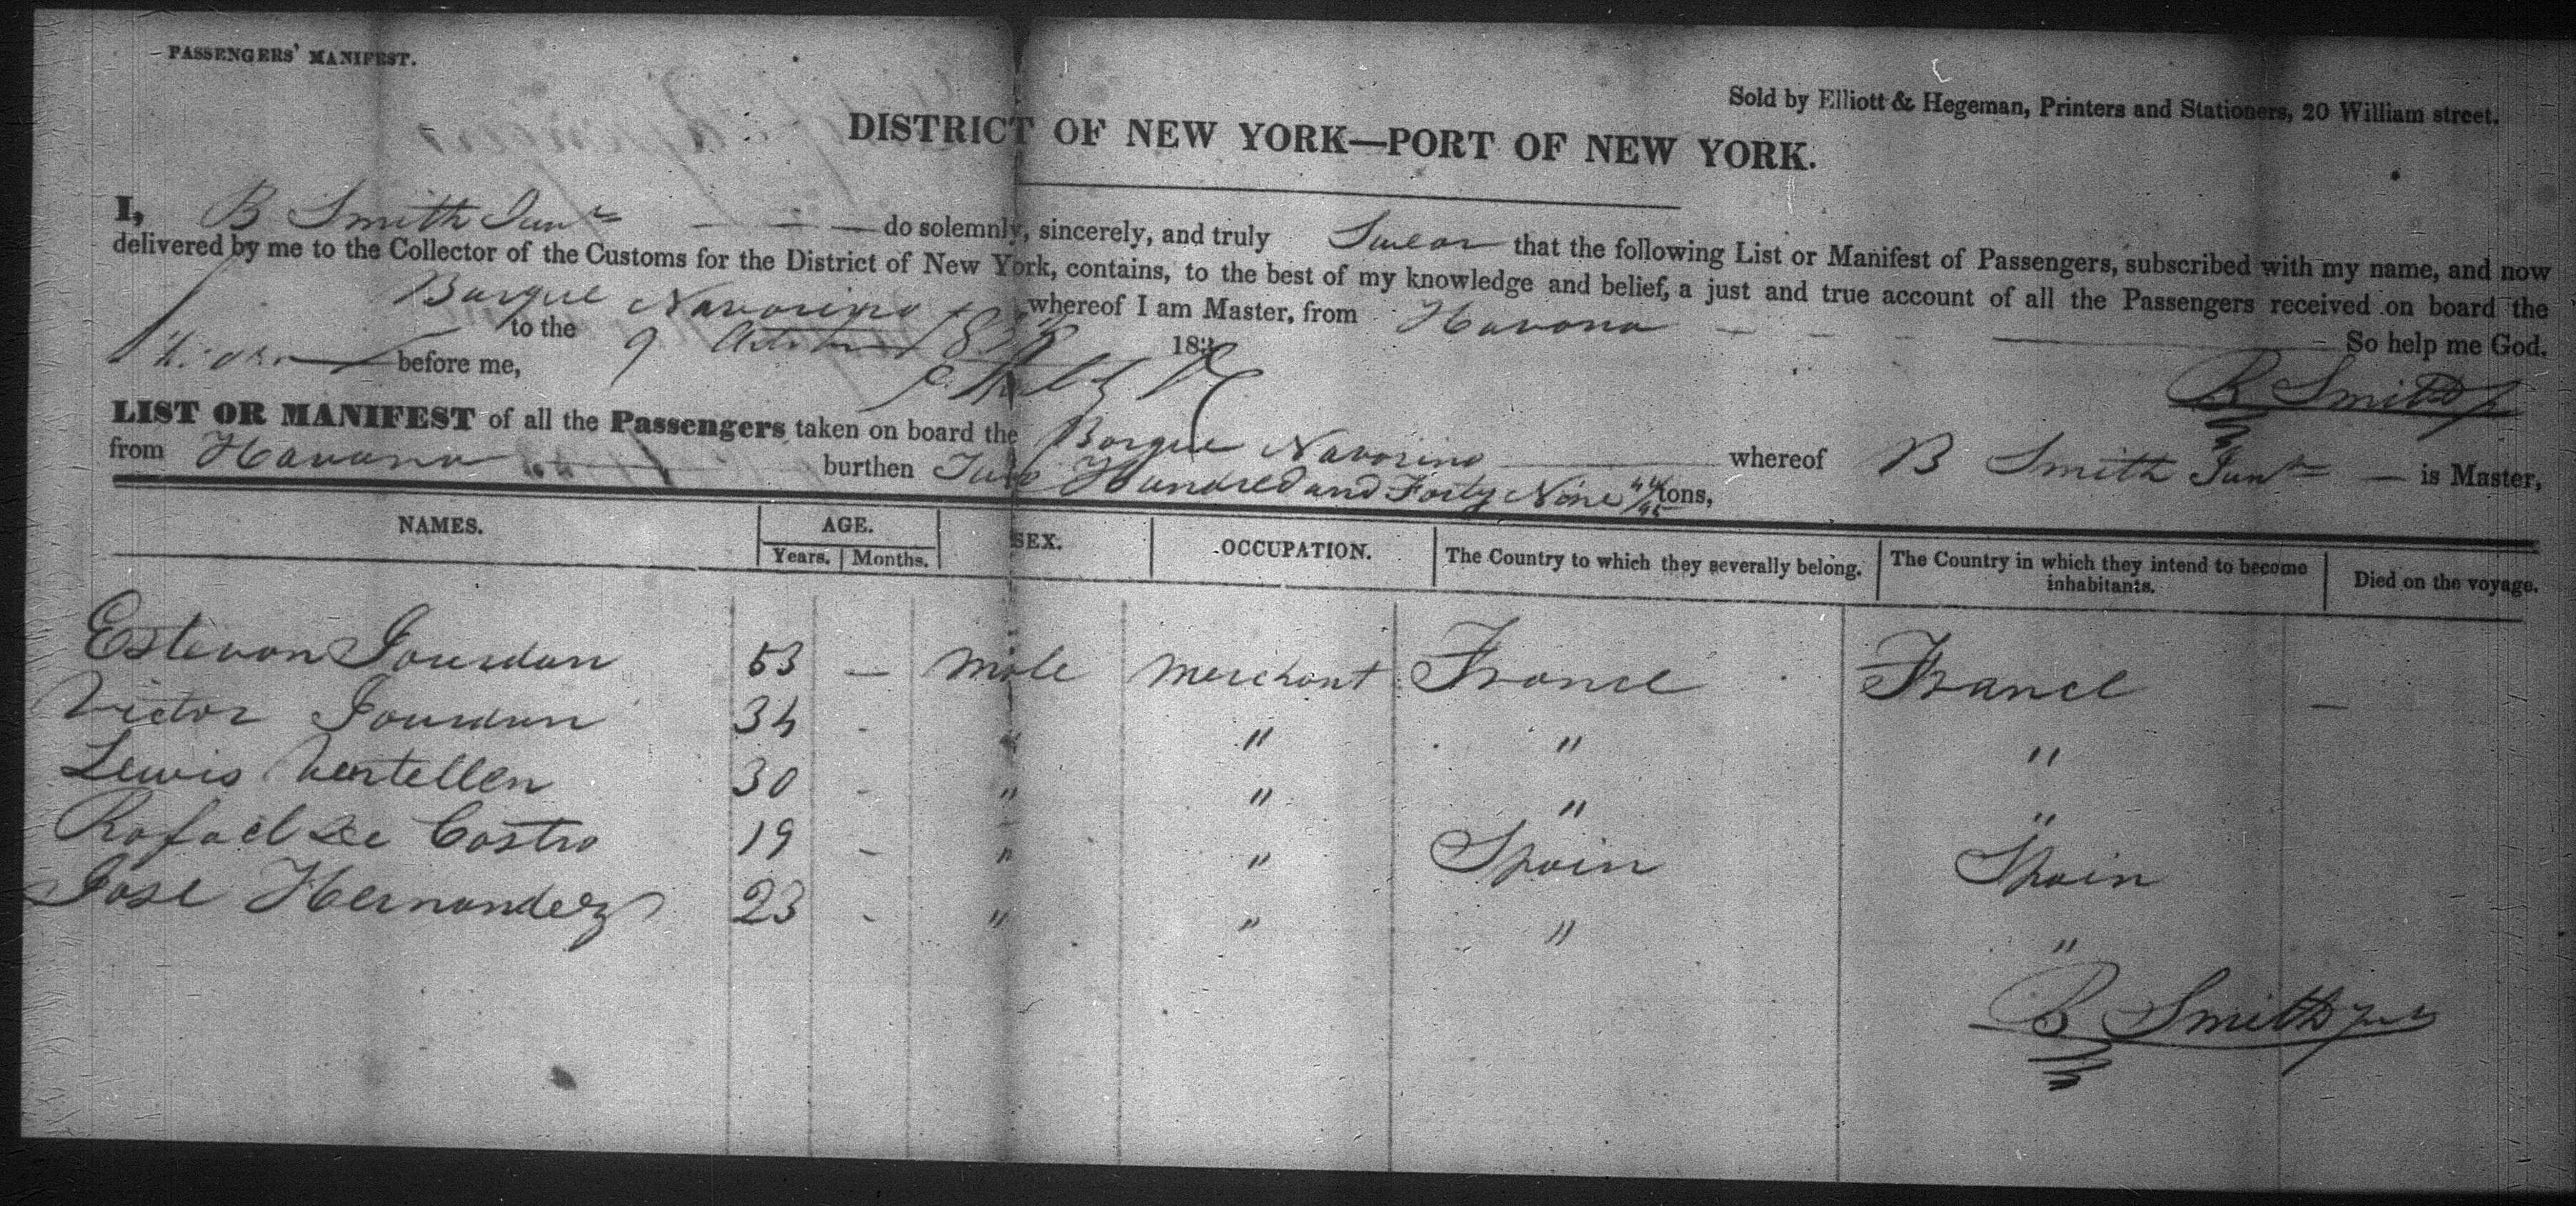 PASSENGERS' MANIFEST.
Sold by Elliott & Hegeman, Printers and Stationers, 20 William street.
DISTRICT OF NEW YORK—PORT OF NEW YORK.
I, B Smith Junr — — — do solemnly, sincerely, and truly Swear that the following List or Manifest of Passengers, subscribed with my name, and now
delivered by me to the Collector of the Customs for the District of New York, contains, to the best of my knowledge and belief, a just and true account of all the Passengers received on board the
Barque Navorino whereof I am Master, from Havana — So help me God.
to the 9 183
before me,
B Smith Jr
LIST OR MANIFEST of all the Passengers taken on board the Barque Navorino whereof B Smith Junr — is Master,
from Havana burthen Two Hundred and Forty Nine 44/95 tons,
NAMES. AGE. SEX. OCCUPATION. The Country to which they severally belong. The Country in which they intend to become inhabitants. Died on the voyage.
Years. Months.
Estevan Jourdan 53 — Male Merchant France France —
Victor Jourdan 34 - " " " "
Lewis 30 - " " " "
Rafael De Castro 19 - " " Spain Spain
Jose Hernandez 23 - " " " "
B Smith Jur